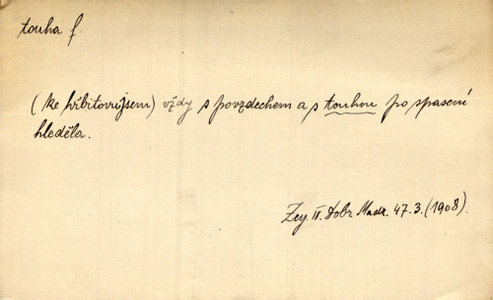 touha f.
(ke hřbitovu jsem) vždy s povzdechem a s touhou po spasení
hleděla.
Zey. II. Dobr. Madr. 47.3. (1908).